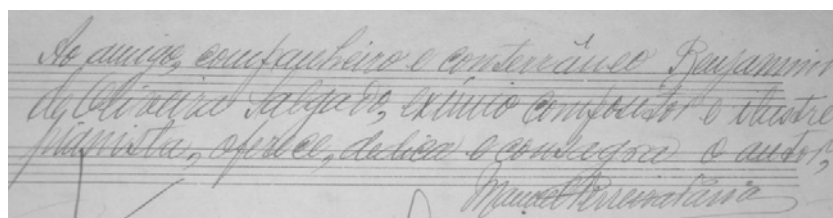 Ao amigo, companheiro e conterrâneo Benjamim
de Oliveira Salgado, exímio compositor e ilustre
pianista, oferece, dedica e consagra o autor,
Manuel Ferreira Faria